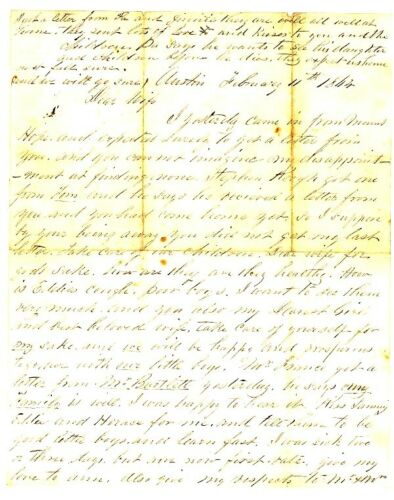 Got a letter from Pa and Jimmie they are well all well at
home. They sent lots of love to and kisses to you and the
children. Pa says he wants to see his daughter
and children before he dies, they expect us home
next fall sure.
and we will go sure. Austin February 11th 1864
Dear Wife
I yesterday came in from Mount
Hope and expected surely to get a letter from
you. and you can not imagine my disappoint-
ment at finding none. Stephen got one
from Tom and he says he recieved a letter from
you and you had come home yet. so I suppose
by your being away you did not get my last
letter. Take care of our children Dear wife for
gods sake. how are they are they healthy. How
is Eddies cough. poor boys, I want to see them
very much. and you also my dearest Girl
and best beloved wife, take care of yourself for
my sake, and we will be happy and prosperous
together with our little boys. Mr. got a
letter from Mr Bartlett yesterday. he says my
Family is well. I was happy to hear it. Kiss
Eddie and Horace for me, and tell them to be
good little boys and learn fast. I was sick two
or three days but am now first rate, give my
love to . also give my respects to Mr &